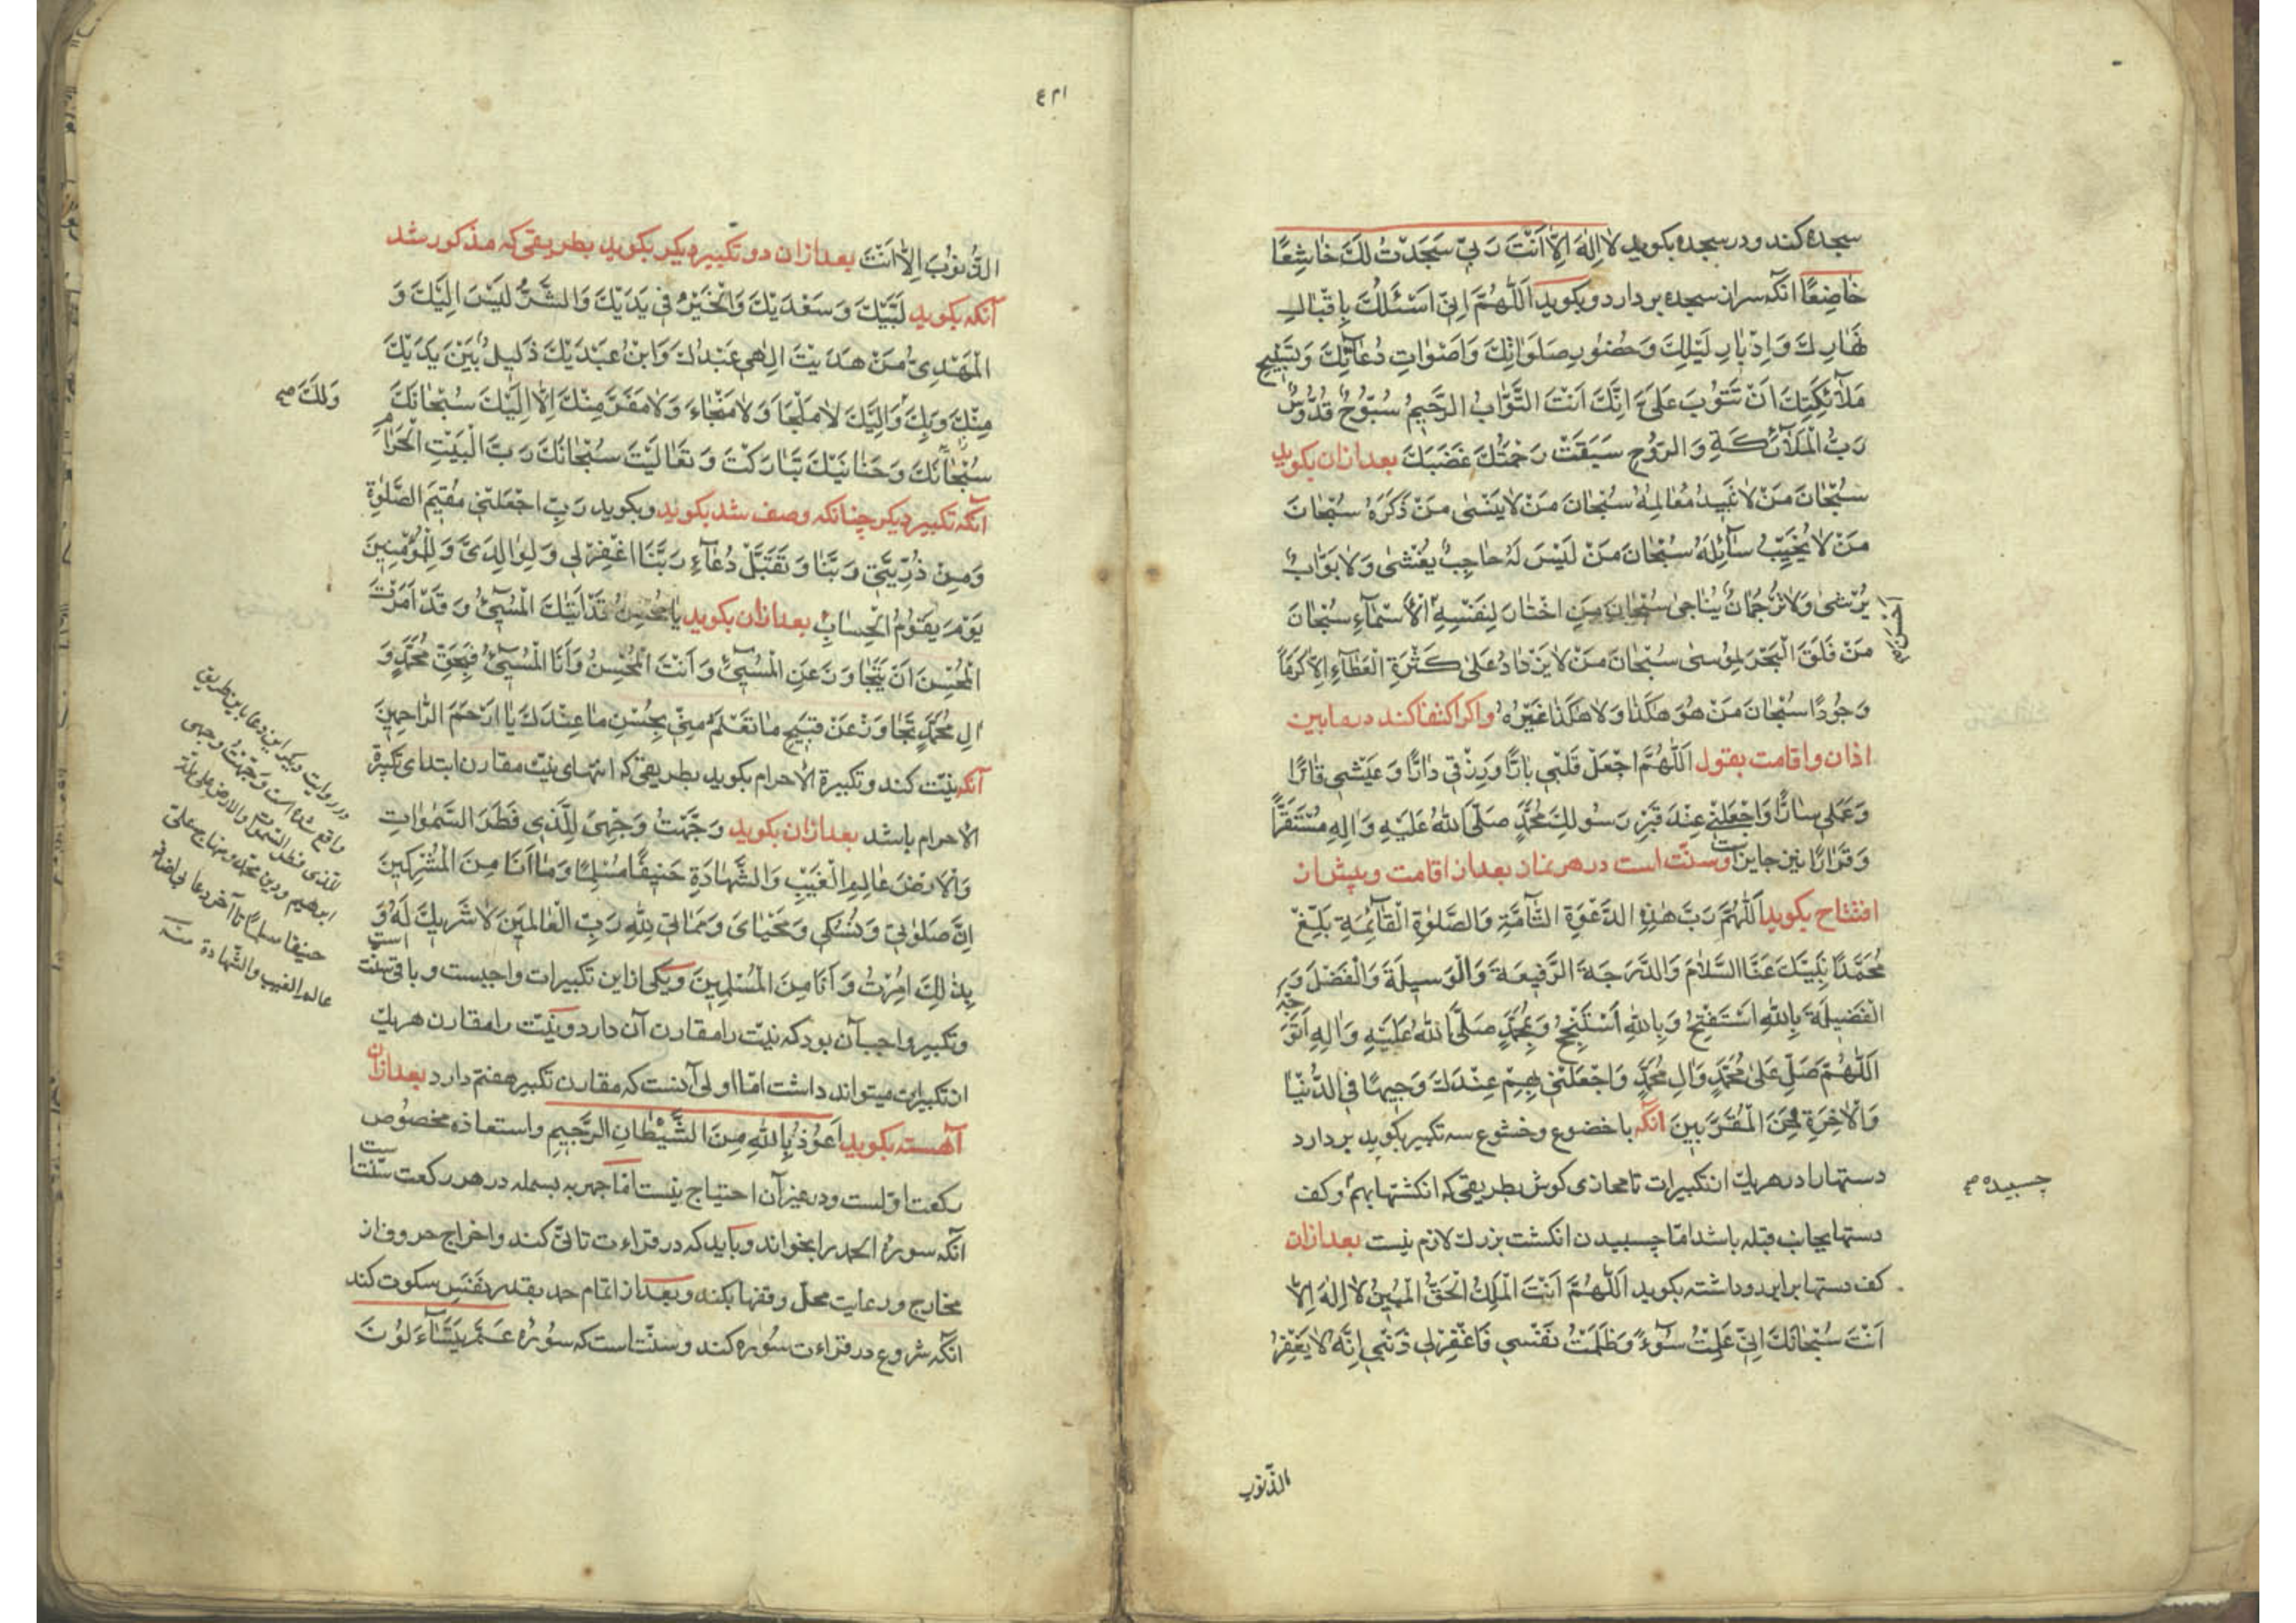 سجده کند و در سجده بکوید لَا اِلٰهَ اِلَّا اَنْتَ رَبِّی سَجَدْتُ لَكَ خَاشِعًا
خَاضِعًا انکه سر از سجده بردارد و بکوید اَللّٰهُمَّ اِنِّی اَسْئَلُكَ بِاِقْبَالِ
نَهَارِكَ وَاِدْبَارِ لَیْلِكَ وَحُضُورِ صَلَوَاتِكَ وَاَصْوَاتِ دُعَائِكَ وَتَسْبِیْحِ
مَلَآئِکَتِكَ اَنْ تَتُوْبَ عَلَیَّ اِنَّكَ اَنْتَ التَّوَّابُ الرَّحِیْمُ سُبُّوحٌ قُدُّوسٌ
رَبُّ الْمَلَآئِکَةِ وَالرُّوْحِ سَبَقَتْ رَحْمَتُكَ غَضَبَكَ بعد ازان بکوید
سُبْحَانَ مَنْ لَا تَبِیدُ مَعَالِمُهُ سُبْحَانَ مَنْ لَا یَنْسٰی مَنْ ذَکَرَهُ سُبْحَانَ
مَنْ لَا یُخَیِّبُ سَآئِلَهُ سُبْحَانَ مَنْ لَیْسَ لَهُ حَاجِبٌ یُغْشٰی وَلَا بَوَّابٌ
یُرْشٰی وَلَا تَرْجُمَانٌ یُنَاجٰی سُبْحَانَ مَنِ اخْتَارَ لِنَفْسِهِ الْاَسْمَآءِ سُبْحَانَ
احسن
مَنْ فَلَقَ الْبَحْرَ لِمُوسٰی سُبْحَانَ مَنْ لَا یَزْدَادُ عَلٰی کَثْرَةِ الْعَطَآءِ اِلَّا کَرَمًا
وَجُودًا سُبْحَانَ مَنْ هُوَ هٰکَذَا وَلَا هٰکَذَا غَیْرُهُ واکر اکتفا کند در مابین
اذان و اقامت بقول اَللّٰهُمَّ اجْعَلْ قَلْبِی بَارًّا وَرِزْقِی دَارًّا وَعَیْشِی قَارًّا
وَعَمَلِی سَارًّا وَاجْعَلْنِی عِنْدَ قَبْرِ رَسُولِكَ مُحَمَّدٍ صَلَّی اللّٰهُ عَلَیْهِ وَاٰلِهِ مُسْتَقَرًّا
وَقَرَارًا نیز جایز است و سنّت است در هر نماز بعد از اقامت و پیش از
افتتاح بکوید اَللّٰهُمَّ رَبَّ هٰذِهِ الدَّعْوَةِ التَّآمَّةِ وَالصَّلٰوةِ الْقَآئِمَةِ بَلِّغْ
مُحَمَّدًا نَبِیَّكَ عَنَّا السَّلَامَ وَالدَّرَجَةَ الرَّفِیعَةَ وَالْوَسِیلَةَ وَالْفَضْلَ وَ
الْفَضِیلَةَ بِاللّٰهِ اَسْتَفْتِحُ وَبِاللّٰهِ اَسْتَنْجِحُ وَبِمُحَمَّدٍ صَلَّی اللّٰهُ عَلَیْهِ وَاٰلِهِ اَتَوَجَّهُ
اَللّٰهُمَّ صَلِّ عَلٰی مُحَمَّدٍ وَاٰلِ مُحَمَّدٍ وَاجْعَلْنِی بِهِمْ عِنْدَكَ وَجِیهًا فِی الدُّنْیَا
وَالْاٰخِرَةِ وَمِنَ الْمُقَرَّبِینَ انکه با خضوع و خشوع سه تکبیر بکوید بردارد
دستها را در هر یك از تکبیرات تا محاذی کوش بطریقی که انکشتها بهم و کف
چسبیده صح
دستها بجانب قبله باشد امّا چسبیدن انکشت بزرك لازم نیست بعد ازان
کف دستها برابر رو داشته بکوید اَللّٰهُمَّ اَنْتَ الْمَلِكُ الْحَقُّ الْمُبِینُ لَا اِلٰهَ اِلَّا
اَنْتَ سُبْحَانَكَ اِنِّی عَمِلْتُ سُوْءً وَظَلَمْتُ نَفْسِی فَاغْفِرْلِی ذَنْبِی اِنَّهُ لَا یَغْفِرُ
الذّنوب
الذُّنُوبَ اِلَّا اَنْتَ بعد ازان دو تکبیر دیکر بکوید بطریقی که مذکور شد
آنکه بکوید لَبَّیْكَ وَسَعْدَیْكَ وَالْخَیْرُ فِی یَدَیْكَ وَالشَّرُّ لَیْسَ اِلَیْكَ وَ
الْمَهْدِیُّ مَنْ هَدَیْتَ اِلٰهِی عَبْدُكَ وَابْنُ عَبْدَیْكَ ذَلِیلٌ بَیْنَ یَدَیْكَ
مِنْكَ وَبِكَ وَاِلَیْكَ لَا مَلْجَاَ وَلَا مَنْجَاءَ وَلَا مَفَرَّ مِنْكَ اِلَّا اِلَیْكَ سُبْحَانَكَ
وَلَكَ صح
سُبْحَانَكَ وَحَنَانَیْكَ تَبَارَکْتَ وَتَعَالَیْتَ سُبْحَانَكَ رَبَّ الْبَیْتِ الْحَرَامِ
آنکه تکبیر دیکر چنانکه وصف شد بکوید و بکوید رَبِّ اجْعَلْنِی مُقِیمَ الصَّلٰوةِ
وَمِنْ ذُرِّیَّتِی رَبَّنَا وَتَقَبَّلْ دُعَآءِ رَبَّنَا اغْفِرْلِی وَلِوَالِدَیَّ وَلِلْمُؤْمِنِینَ
یَوْمَ یَقُوْمُ الْحِسَابُ بعد ازان بکوید یَا مُحْسِنُ قَدْ اَتَاكَ الْمُسِیْٓئُ وَقَدْ اَمَرْتَ
الْمُحْسِنَ اَنْ یَتَجَاوَزَ عَنِ الْمُسِیْٓئِ وَاَنْتَ الْمُحْسِنُ وَاَنَا الْمُسِیْٓئُ فَبِحَقِّ مُحَمَّدٍ وَ
اٰلِ مُحَمَّدٍ تَجَاوَزْ عَنْ قَبِیحِ مَا تَعْلَمُ مِنِّی بِحُسْنِ مَا عِنْدَكَ یَا اَرْحَمَ الرَّاحِمِینَ
آنکه نیّت کند و تکبیرة الاحرام بکوید بطریقی که انتهای نیّت مقارن ابتدای تکبیرة
الاحرام باشد بعد ازان بکوید وَجَّهْتُ وَجْهِیَ لِلَّذِی فَطَرَ السَّمٰوَاتِ
وَالْاَرْضَ عَالِمِ الْغَیْبِ وَالشَّهَادَةِ حَنِیفًا مُسْلِمًا وَمَا اَنَا مِنَ الْمُشْرِکِینَ
اِنَّ صَلٰوتِی وَنُسُکِی وَمَحْیَایَ وَمَمَاتِی لِلّٰهِ رَبِّ الْعَالَمِینَ لَا شَرِیكَ لَهُ وَ
بِذٰلِكَ اُمِرْتُ وَاَنَا مِنَ الْمُسْلِمِینَ و یکی از این تکبیرات واجبست و باقی سنّت است
و تکبیر واجب آن بود که نیّت را مقارن آن دارد و نیّت را مقارن هر یك
از تکبیرات میتواند داشت امّا اولی آنست که مقارن تکبیر هفتم دارد بعد ازان
آهسته بکوید اَعُوْذُ بِاللّٰهِ مِنَ الشَّیْطَانِ الرَّجِیمِ و استعاذه مخصوص
رکعت اوّلست و در غیر آن احتیاج نیست امّا جهر به بسمله در هر رکعت سنّت است
آنکه سوره الحمد را بخواند و باید که در قراءت تانّی کند و اخراج حروف از
مخارج و رعایت محلّ وقفها بکند و بعد از اتمام حمد بقدر نَفَسی سکوت کند
انکه شروع در قراءت سوره کند و سنّت است که سوره عَمَّ یَتَسَآءَلُوْنَ
در روایت دیکر این دعا باین طریق
واقع شده است وَجَّهْتُ وجهی
للذی فطر السّموات والارض علی ملّة
ابرهیم و دین محمّد و منهاج علیّ
حنیفا مسلمًا تا آخر دعا بی اضافه
عالم الغیب والشّهادة منه